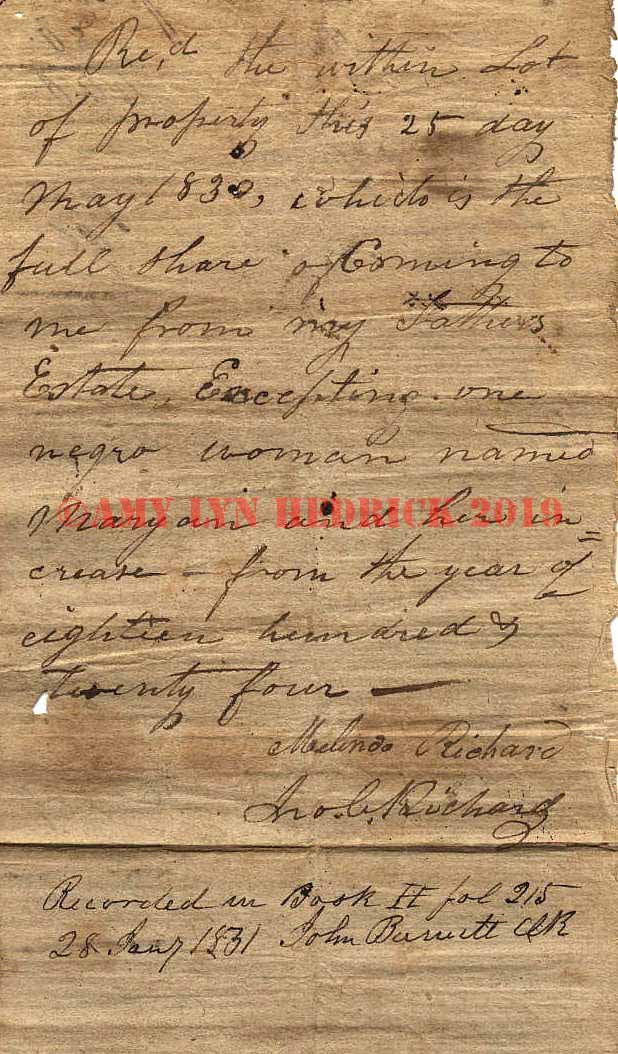 Re,d the within Lot
of property this 25 day
May 1830, which is the
full share of Coming to
me from my Fathers
Estate, Excepting one
negro woman named
Maryan and her in=
©AMY LYN HEDRICK 2019
crease - from the year of
eighteen hundred &
twenty four —
Melinda Richard
Jno. C. Richard
Recorded in Book H fol 215
28 Jany 1831 John Burnett Clk